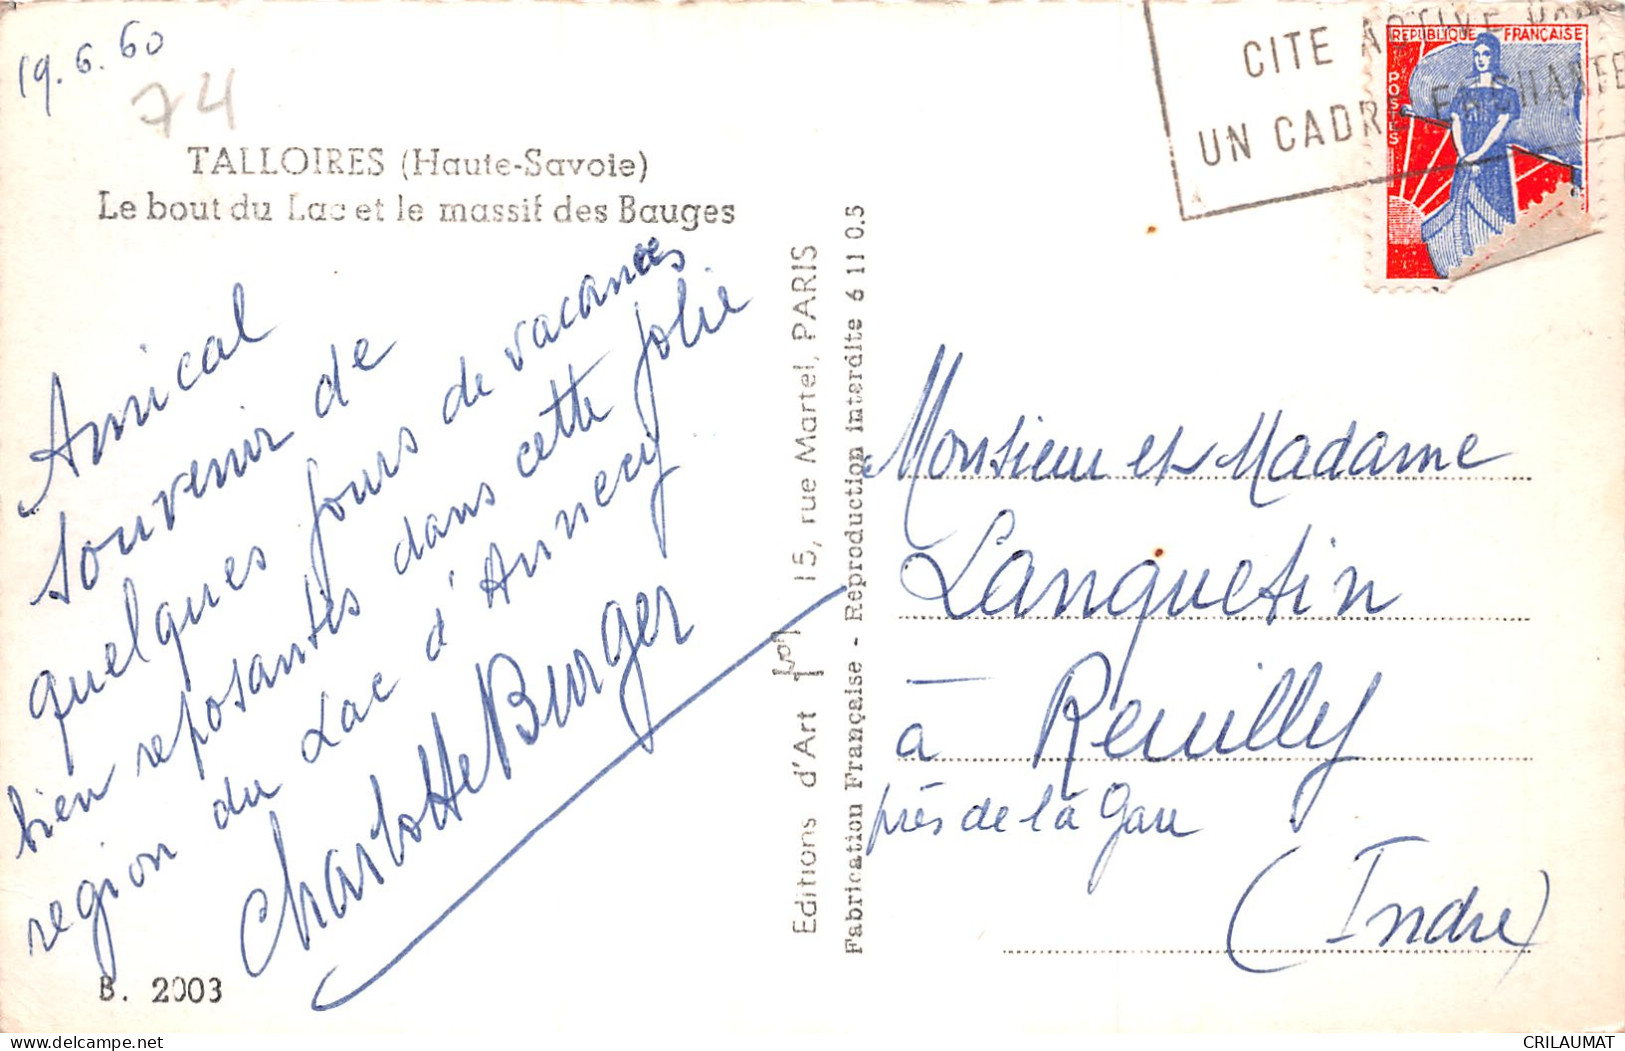 19.6.60
74
TALLOIRES (Haute-Savoie)
Le bout du Lac et le massif des Bauges
Amical
souvenir de
quelques jours de vacances
bien reposantes dans cette jolie
region du Lac d'Annecy
Charlotte Burger
B. 2003
Editions d'Art 15, rue Martel, PARIS
Fabrication Française - Reproduction interdite 6 11 0.5
CITE ACTIVE DANS
UN CADRE ENCHANTE
REPUBLIQUE FRANÇAISE
POSTES
Monsieur et Madame
Languetin
à Reuilly
près de la Gare
(Indre)
CRILAUMAT